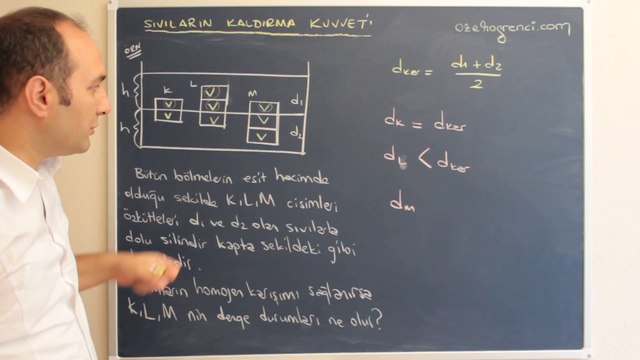 SIVILARIN KALDIRMA KUVVETİ
ozelogrenci.com
ÖRN
K L M
h
h
V V V V V V V V
d₁
d₂
dker = d1 + d2 / 2
dK = dker
dL < dker
dM
Bütün bölmelerin eşit hacimde
olduğu şekilde K,L,M cisimleri
özkütleleri d1 ve d2 olan sıvılarla
dolu silindir kapta şekildeki gibi
homojen karışımı sağlanırsa
K,L,M nin denge durumları ne olur?